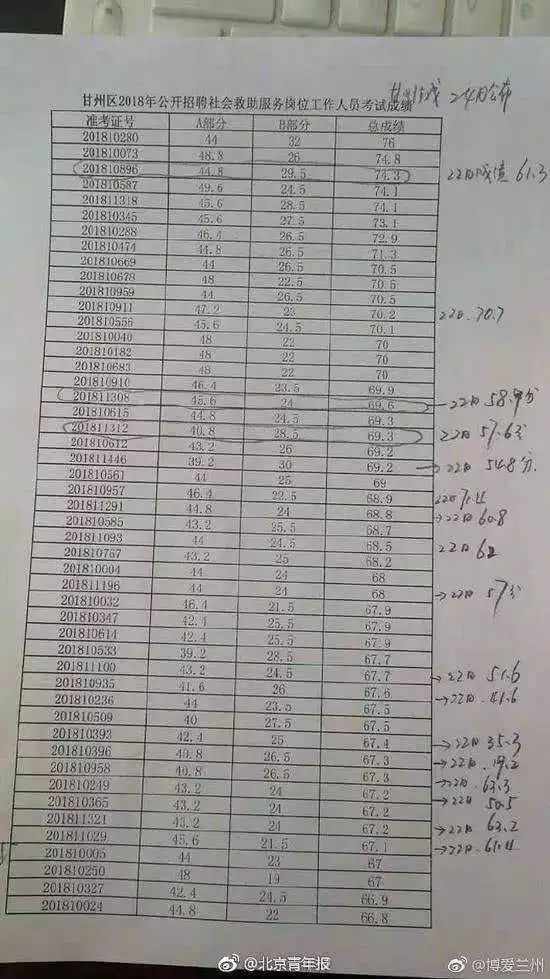 甘州区2018年公开招聘社会救助服务岗位工作人员考试成绩
准考证号 A部分 B部分 总成绩
201810280 44 32 76
201810073 48.8 26 74.8
201810896 44.8 29.5 74.3 22日成绩 61.3
201810587 49.6 24.5 74.1
201811318 45.6 28.5 74.1
201810345 45.6 27.5 73.1
201810288 46.4 26.5 72.9
201810474 44.8 26.5 71.3
201810669 44 26.5 70.5
201810678 48 22.5 70.5
201810959 44 26.5 70.5
201810911 47.2 23 70.2 22日.70.7
201810556 45.6 24.5 70.1
201810040 48 22 70
201810182 48 22 70
201810683 48 22 70
201810910 46.4 23.5 69.9
201811308 45.6 24 69.6 22日 58.9分
201810615 44.8 24.5 69.3
201811312 40.8 28.5 69.3 22日 57.6分
201810612 43.2 26 69.2
201811446 39.2 30 69.2 22日 54.8分
201810561 44 25 69
201810957 46.4 22.5 68.9
201811291 44.8 24 68.8 22日 60.8
201810585 43.2 25.5 68.7
201811093 44 24.5 68.5 22日 62
201810767 43.2 25 68.2
201810004 44 24 68
201811196 44 24 68 22日 57分
201810032 46.4 21.5 67.9
201810347 42.4 25.5 67.9
201810614 42.4 25.5 67.9
201810533 39.2 28.5 67.7
201811100 43.2 24.5 67.7 22日 51.6
201810935 41.6 26 67.6 22日.41.6
201810236 44 23.5 67.5
201810509 40 27.5 67.5
201810393 42.4 25 67.4 22日 35.3
201810396 40.8 26.5 67.3 22日.19.2
201810958 40.8 26.5 67.3 22日.63.3
201810249 43.2 24 67.2 22日 50.5
201810365 43.2 24 67.2
201811321 43.2 24 67.2 22日 63.2
201811029 45.6 21.5 67.1 22日.61.4
201810005 44 23 67
201810250 48 19 67
201810327 42.4 24.5 66.9
201810024 44.8 22 66.8
@北京青年报
@博爱兰州